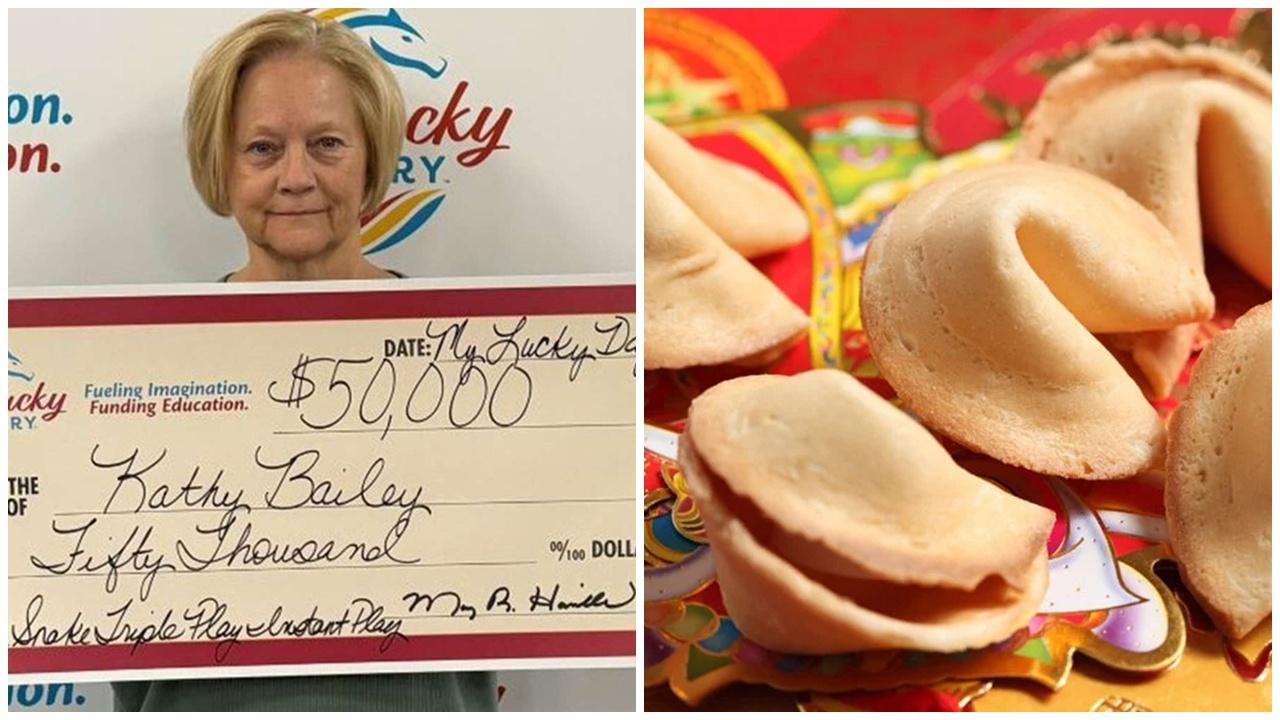 on.
on.
cky
RY™
DATE: My Lucky Da
$50,000
ucky
RY
Fueling Imagination.
Funding Education.
THE
OF
Kathy Bailey
Fifty Thousand
00/100 DOLL
Snake Triple Play Instant Play
on.